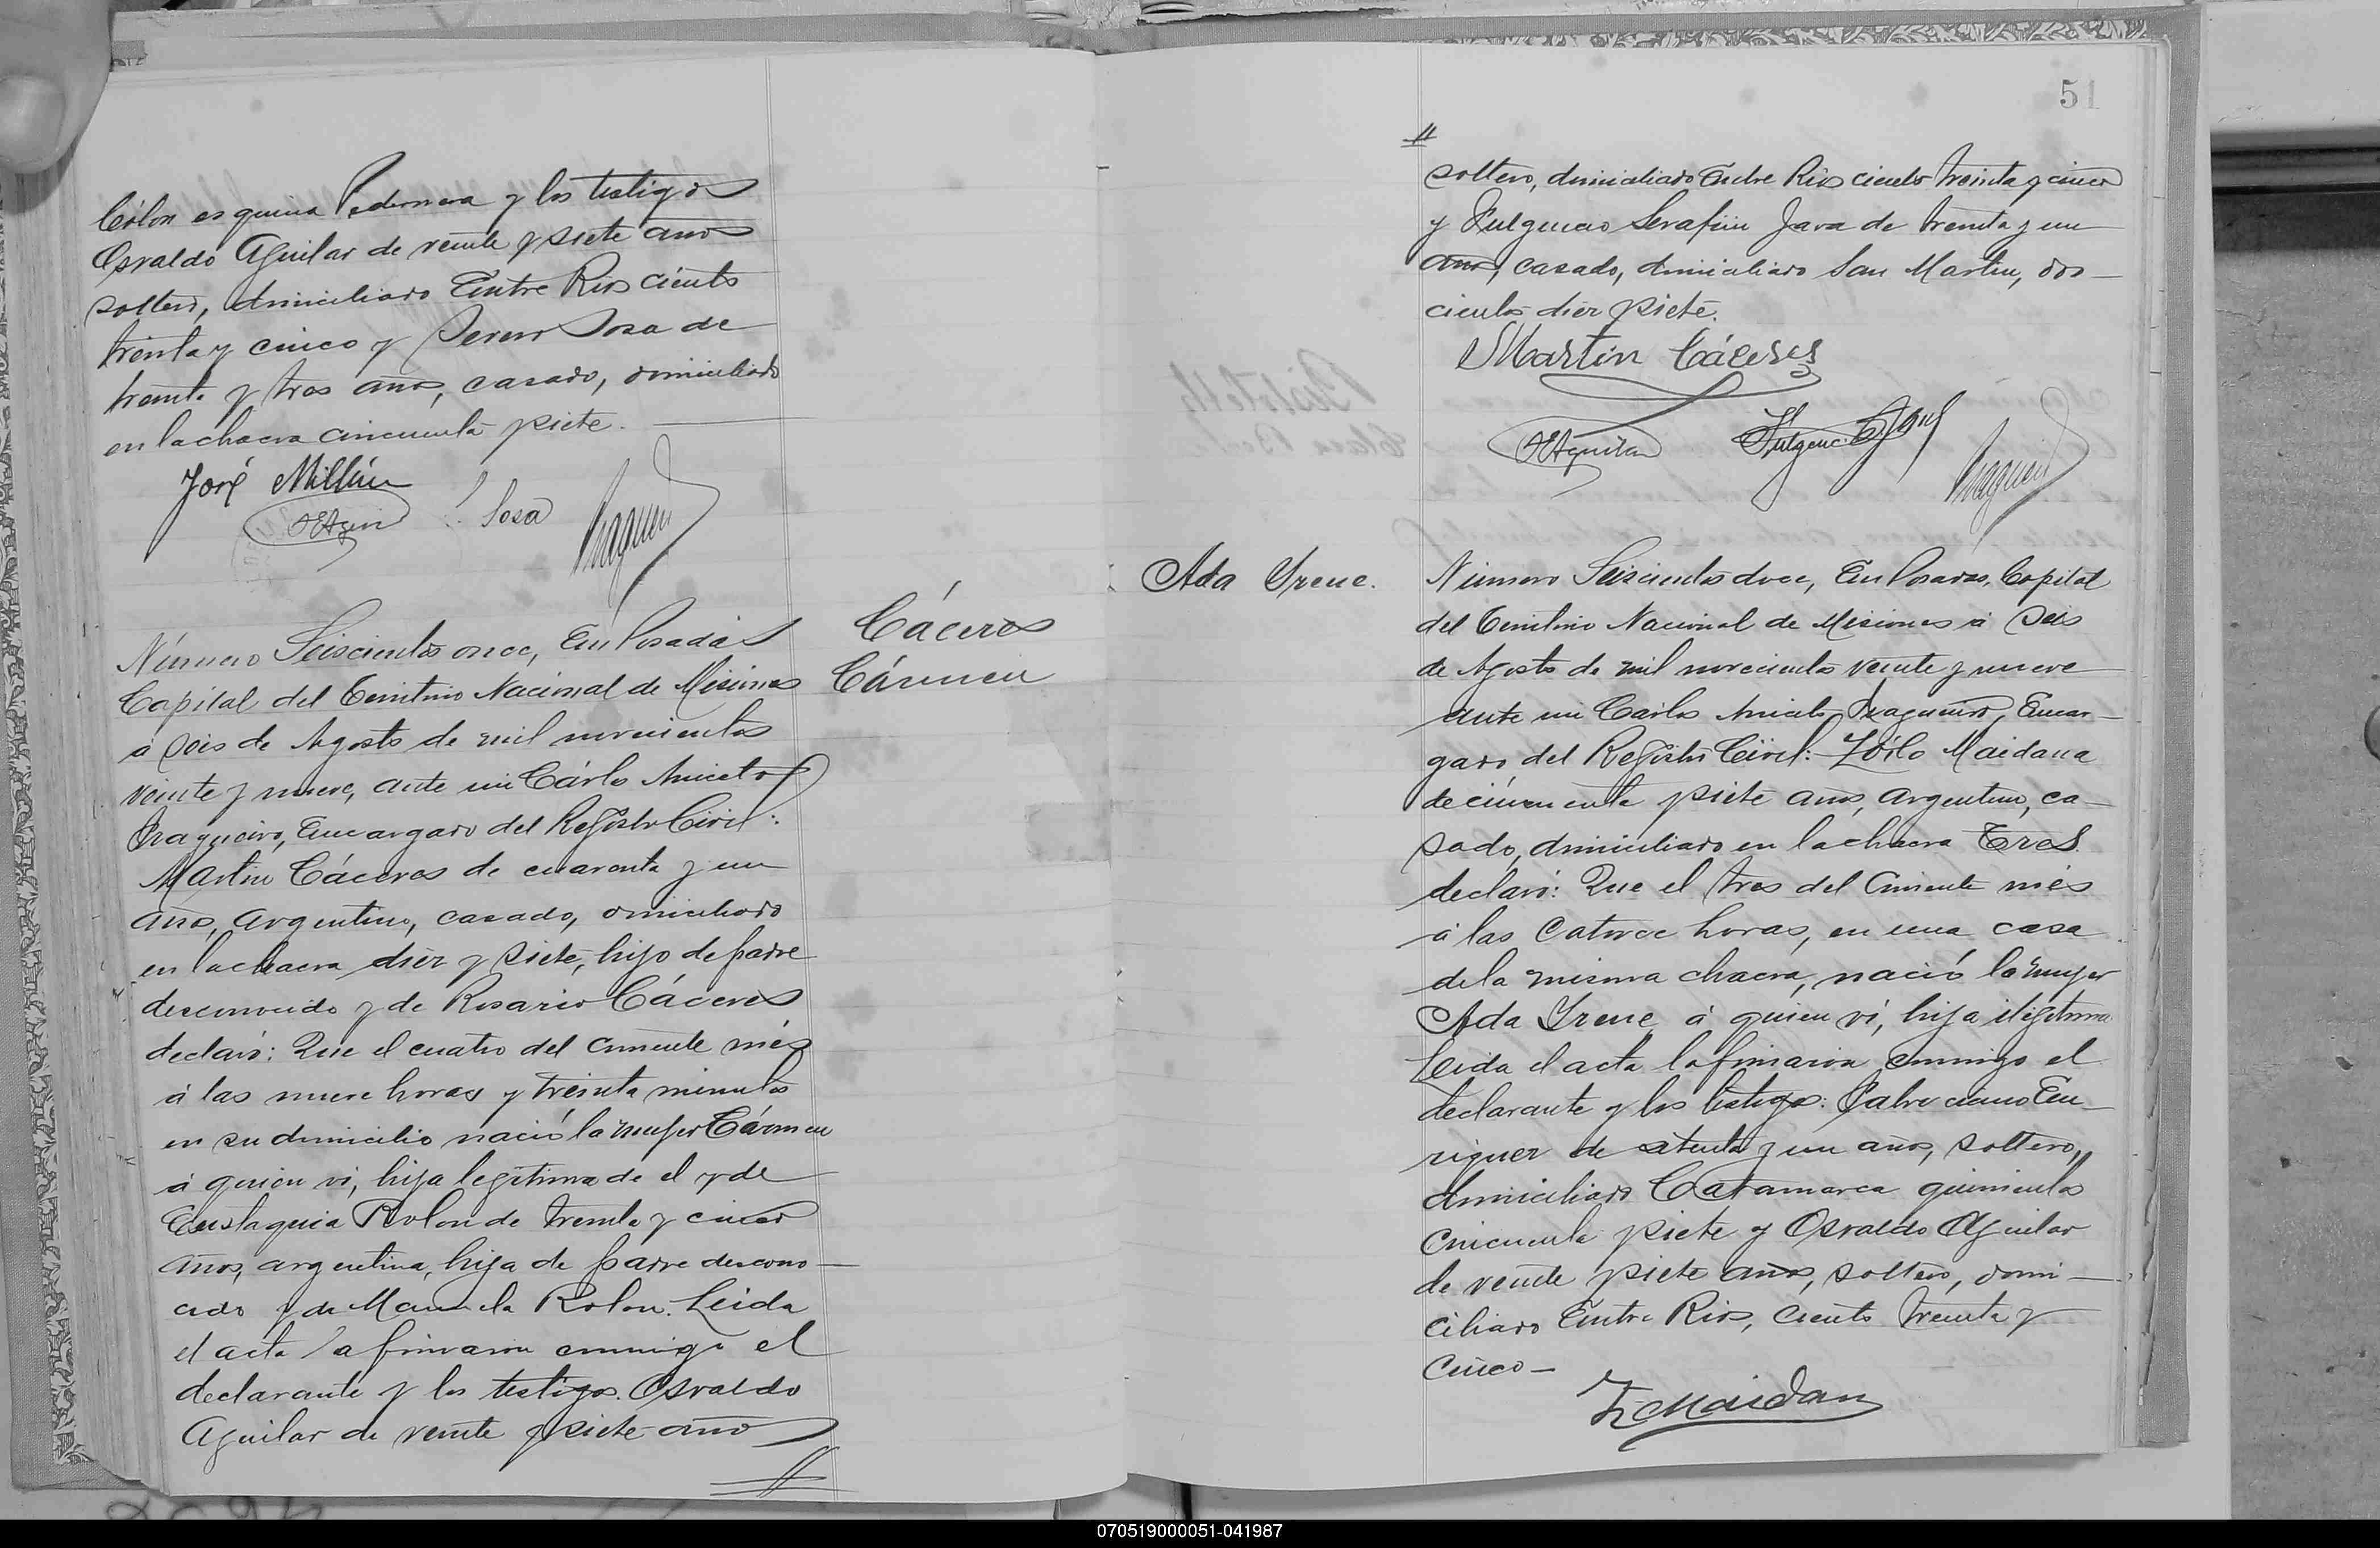 Cólon esquina Pedernera y los testigos
Osvaldo Aguilar de veinte y siete años
soltero, domiciliado Entre Rios ciento
treinta y cinco y Severo Sosa de
treinta y tres años, casado, domiciliado
en la chacra cincuenta y siete.
José Millán
Sosa
Número Seiscientos once, En Posadas
Capital del Territorio Nacional de Misiones
á seis de Agosto de mil novecientos
veinte y nueve, ante mi Cárlos Aniceto
Fragueiro, Encargado del Registro Civil:
Martin Cáceres de cuarenta y un
años, argentino, casado, domiciliado
en la chacra diez y siete, hijo de padre
desconocido y de Rosario Cáceres
declaró: Que el cuatro del corriente més
á las nueve horas y treinta minutos
en su domicilio nació la mujer Cármen
á quien vi, hija legitima de el y de
Eustaquia Rolon de treinta y cinco
años, argentina, hija de padre descono-
cido y de Manuela Rolon. Leida
el acta la firmaron conmigo el
declarante y los testigos. Osvaldo
Aguilar de veinte y siete años
//
Cáceres
Cármen
51
//
soltero, domiciliado Entre Rios ciento treinta y cinco
y Fulgencio Serafin Java de treinta y un
años, casado, domiciliado San Martin, dos-
cientos diez y siete.
Martin Cáceres
Ada Irene.
Número Seiscientos doce, En Posadas, Capital
del Territorio Nacional de Misiones á seis
de Agosto de mil novecientos veinte y nueve
ante mi Carlos Aniceto Fragueiro, Encar-
gado del Registro Civil: Zóilo Maidana
de cincuenta y siete años, argentino, ca-
sado, domiciliado en la chacra Tres.
declaró: Que el tres del corriente més
á las catorce horas, en una casa
de la misma chacra, nació la mujer
Ada Irene á quien vi, hija ilegitima
Leida el acta la firmaron conmigo el
declarante y los testigos: Patrocinio En-
riquez de setenta y un años, soltero,
domiciliado Catamarca quinientos
cincuenta y siete y Osvaldo Aguilar
de veinte y siete años, soltero, domi-
ciliado Entre Rios, ciento treinta y
cinco-
Z Maidana
070519000051-041987